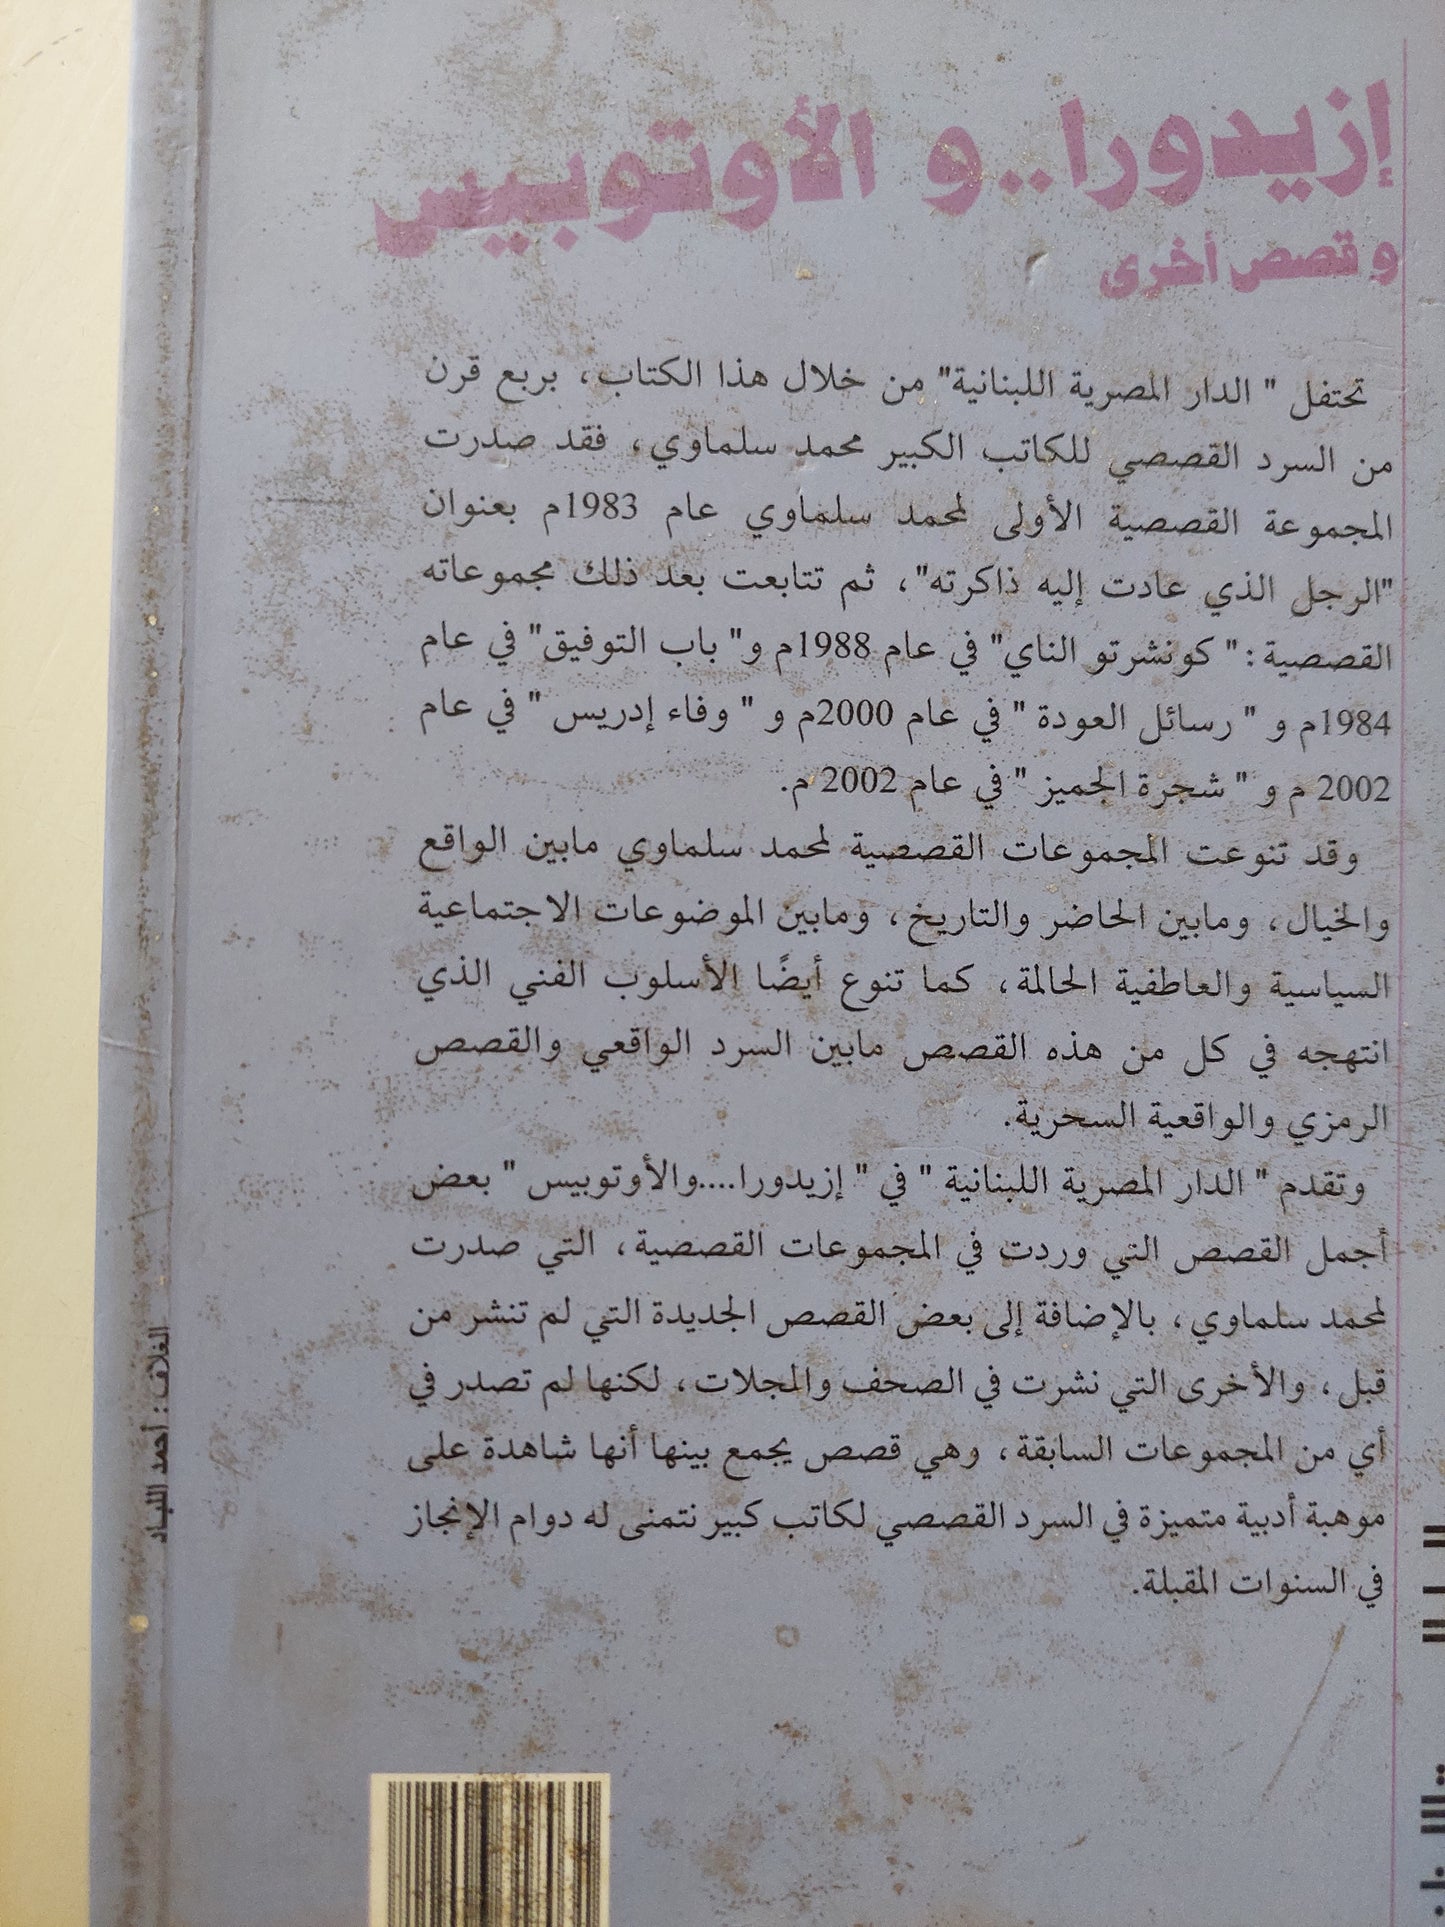 إزيدورا.. و الأوتوبيس
و قصص أخرى
تحتفل " الدار المصرية اللبنانية" من خلال هذا الكتاب، بربع قرن
من السرد القصصي للكاتب الكبير محمد سلماوي، فقد صدرت
المجموعة القصصية الأولى لمحمد سلماوي عام 1983م بعنوان
"الرجل الذي عادت إليه ذاكرته"، ثم تتابعت بعد ذلك مجموعاته
القصصية: " كونشرتو الناي" في عام 1988م و" باب التوفيق" في عام
1984م و " رسائل العودة " في عام 2000م و " وفاء إدريس " في عام
2002 م و " شجرة الجميز " في عام 2002 م.
وقد تنوعت المجموعات القصصية لمحمد سلماوي مابين الواقع
والخيال، ومابين الحاضر والتاريخ، ومابين الموضوعات الاجتماعية
السياسية والعاطفية الحالمة، كما تنوع أيضًا الأسلوب الفني الذي
انتهجه في كل من هذه القصص مابين السرد الواقعي والقصص
الرمزي والواقعية السحرية.
وتقدم " الدار المصرية اللبنانية " في " إزيدورا....والأوتوبيس " بعض
أجمل القصص التي وردت في المجموعات القصصية، التي صدرت
لمحمد سلماوي، بالإضافة إلى بعض القصص الجديدة التي لم تنشر من
قبل، والأخرى التي نشرت في الصحف والمجلات، لكنها لم تصدر في
أي من المجموعات السابقة، وهي قصص يجمع بينها أنها شاهدة على
موهبة أدبية متميزة في السرد القصصي لكاتب كبير نتمنى له دوام الإنجاز
في السنوات المقبلة.
الغلاف: أحمد اللباد